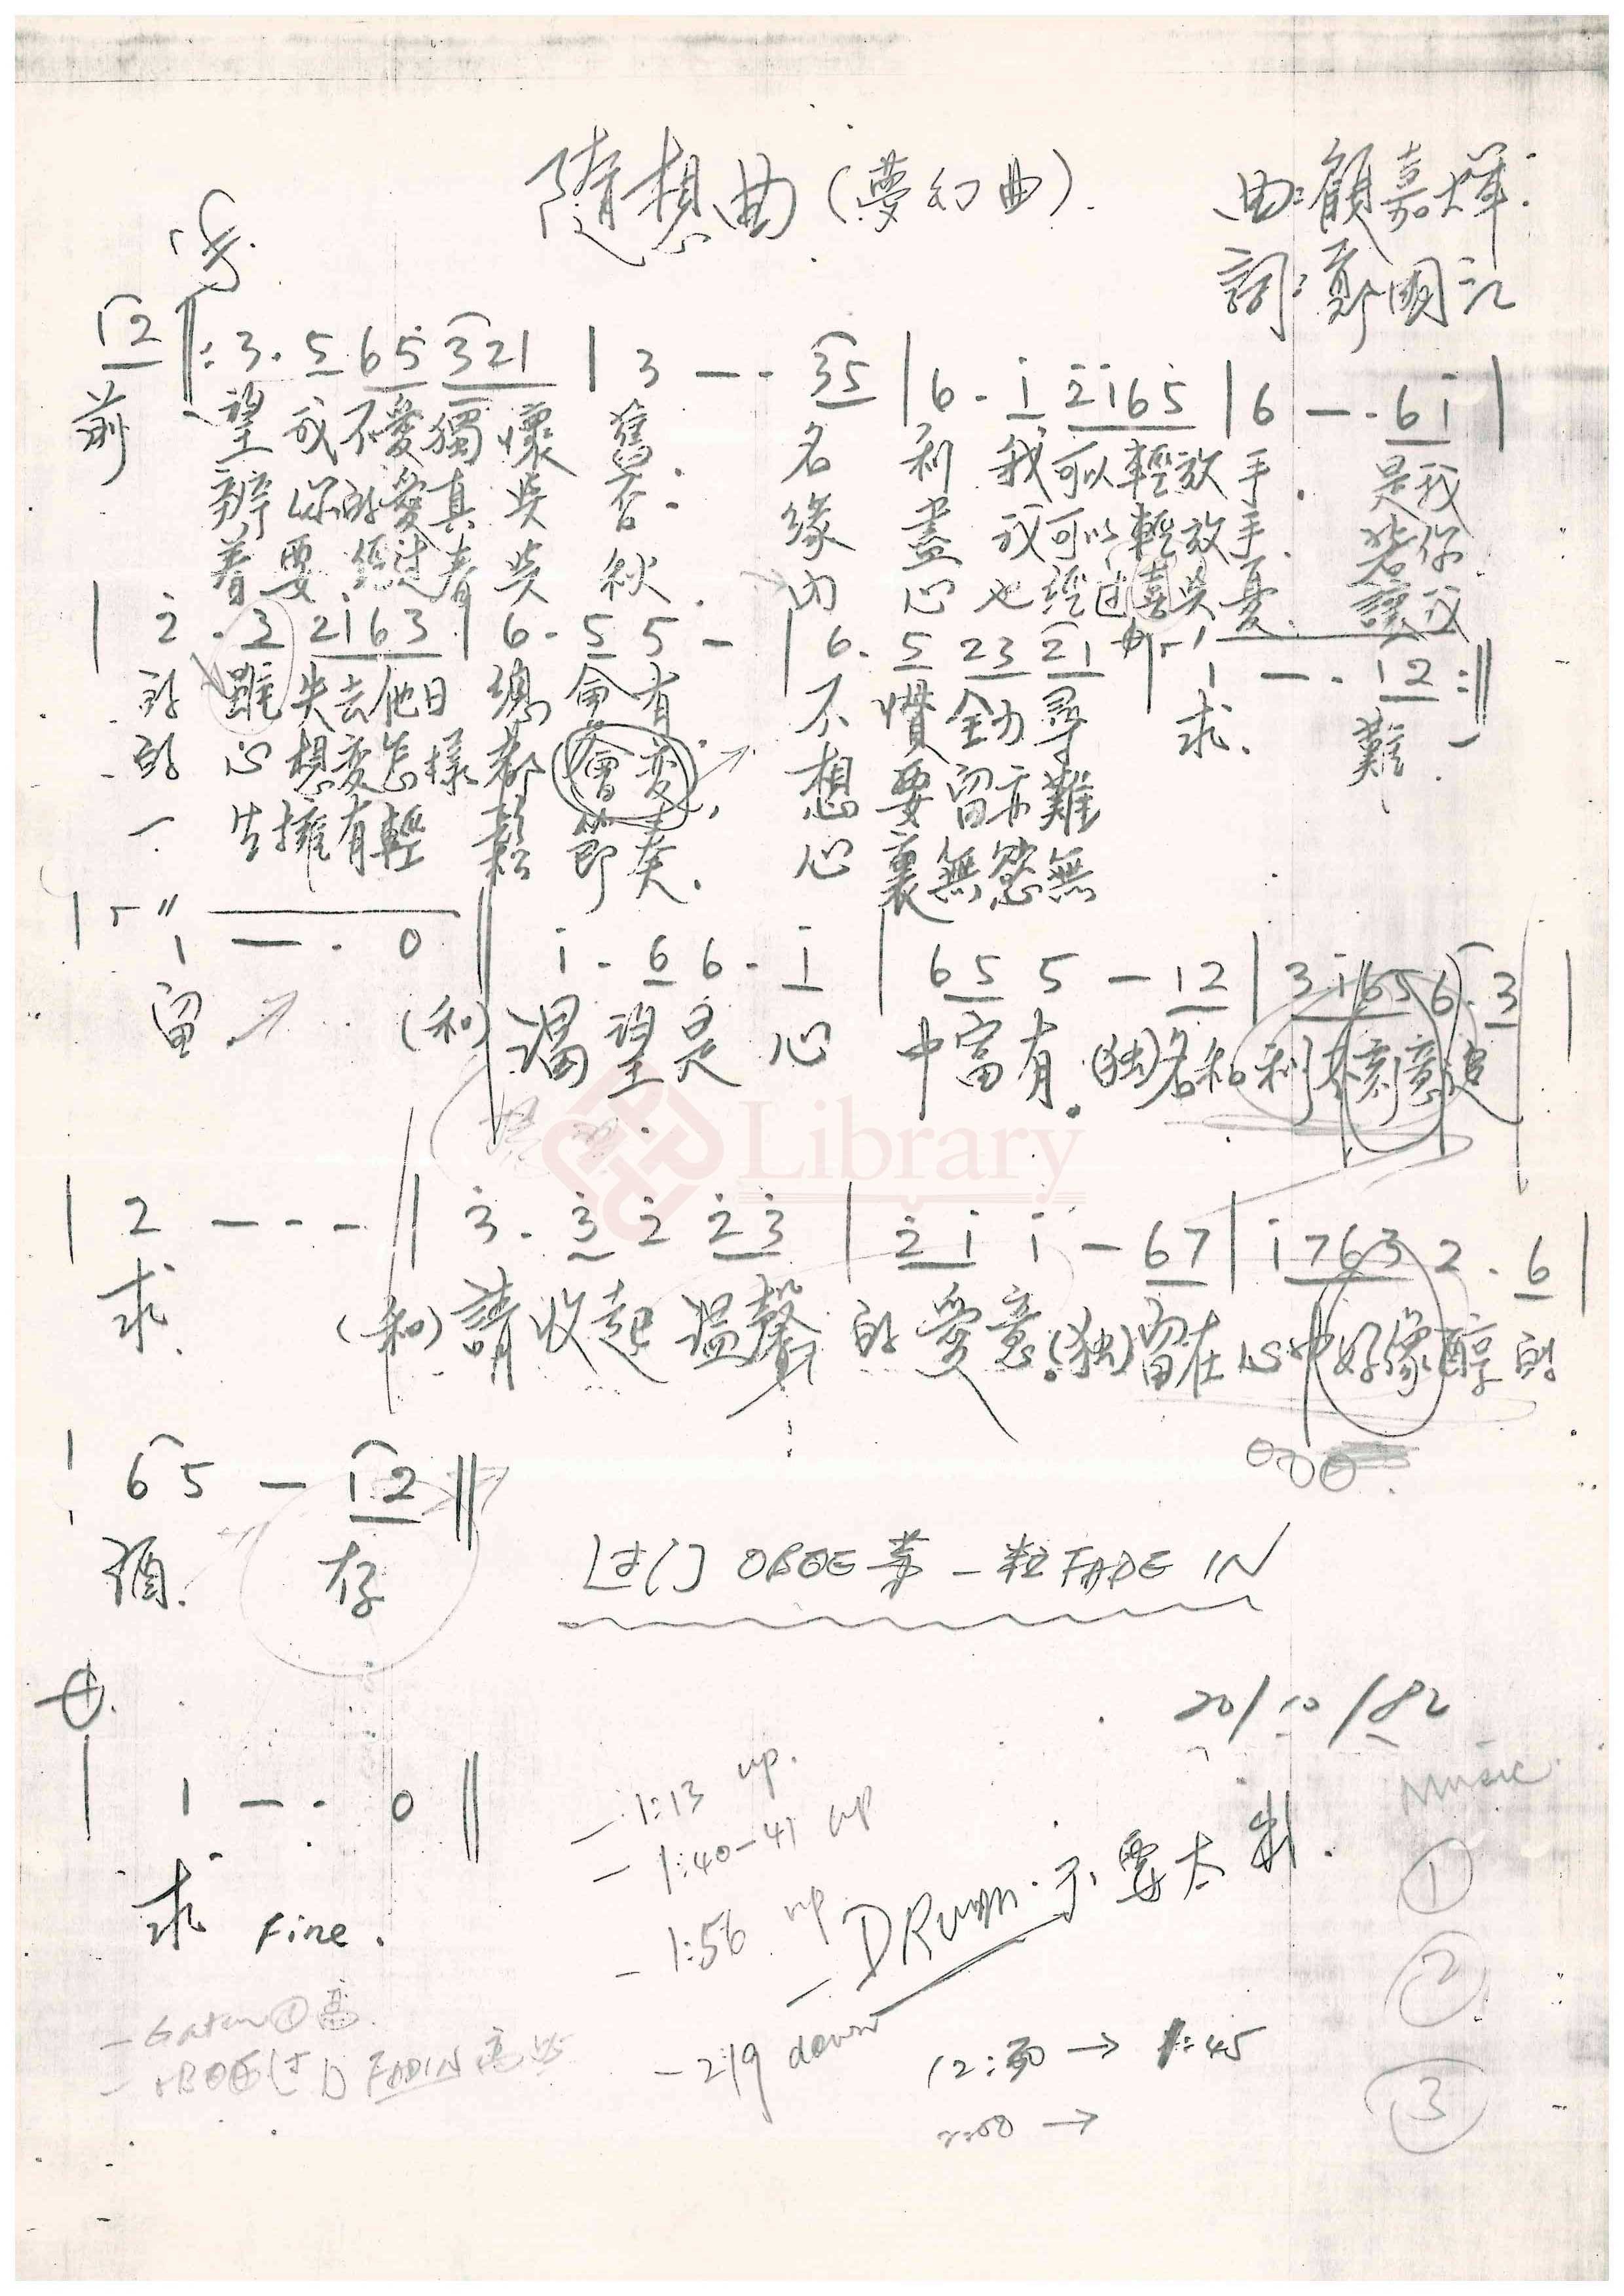 隨想曲(夢幻曲).
曲:顧嘉煇.
詞:鄭國江
12 ‖: 3. 5 65 321 | 3 — - 35 | 6 . i 2i65 | 6 — . 6i |
前 望 我不愛獨懷 舊. 名 利 我可以輕放手. 是我
辨 你的愛真與 否. 緣 盡 我可以輕放手. 若你
着 要 經过春與 秋. 内 心 也經过喜與憂. 讓我
| 2 . 3 2i63 | 6 . 5 5 — | 6 . 5 23 21 | 1 — . 12 :‖
的 雖失去他日 總 會有 不 惜全力尋 求. 難
的 心想变怎樣 都 會变, 想 要留亦難
一 生擁有輕 鬆 節奏. 心 裏無慾無
| 1 — . 0 ‖ i . 6 6 . i | 65 5 — 12 | 3i65 6 . 3 |
留. (和) 渴望是 心 中富有. (独)名和利不刻意追
| 2 — - - ‖ 3 . 3 2 23 | 2i i — 67 | i763 2 . 6 |
求. (和)請收起溫馨 的愛意.(独)留在心中好像醇的
| 65 — i2 ‖
酒. 存
过门 OBOE 第一粒 FADE IN
20/10/82
Music
| 1 — . 0 ‖
求 Fine.
— 1:13 up.
— 1:40-41 up
— 1:56 up
— DRUMM 不要太
— 2:19 down
①
②
③
12:30 → 1:45
2:00 →
— OBOE过门 FADIN
PCPD Library